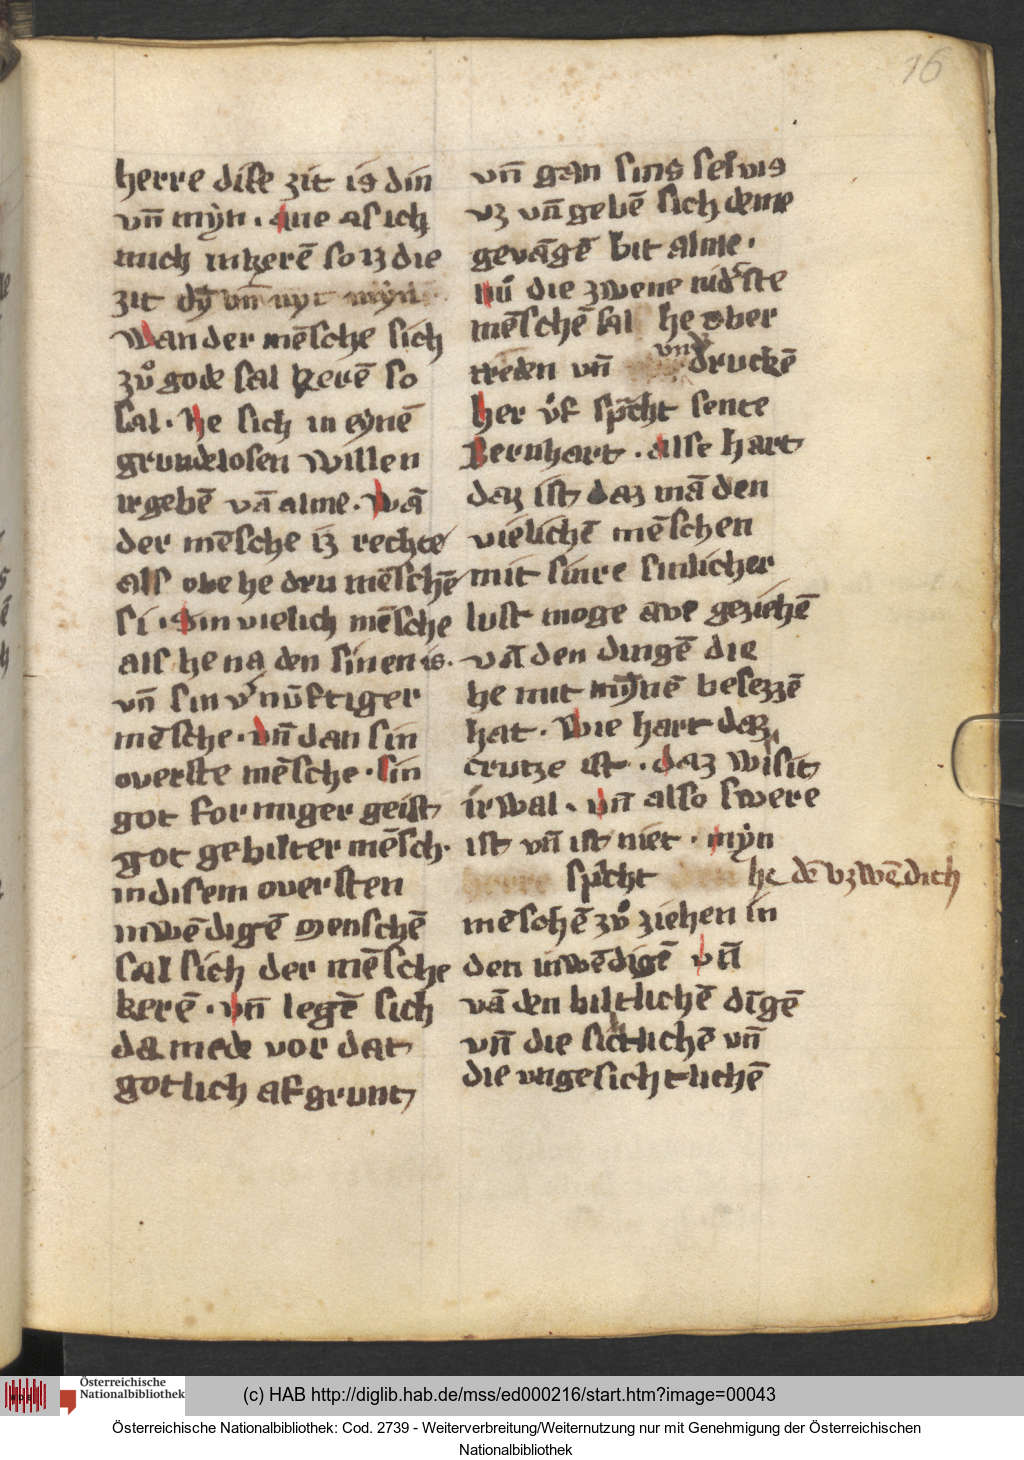 16
herre dise zit is din
vn̄ mẏn . aue als ich
mich inkerē so iz die
zit dẏ vn̄ nẏt mẏn
Wan der mēsche sich
zů gode sal kerē so
sal . he sich in eynē
grundelosen willen
irgebē vā alme . Wā
der mēsche iz rechte
als obe he dru mēschē
si . Sin vielich mēsche
als he na den sinen is .
vn̄ sin v'nūftiger
mēsche . vn̄ dan sin
overste mēsche . sin
got formiger geist
got gebilter mēsch .
in disem oversten
inwēdigē menschē
sal sich der mēsche
kerē . vn̄ legē sich
da mede vor dat
gotlich afgrunt
vn̄ gan sins selvis
vz vn̄ gebē sich deme
gevāgē bit alme .
nů die zwene nid'ste
mēschē sal he ober
treden vn̄ vnd' druckē
her ůf sp̄cht sente
Bernhart . alse hart
daz ist daz mā den
vielichē mēschen
mit sinre sinlicher
lust moge ave geziehē
vā den dingē die
he mit mẏnē besezzē
hat . Wie hart daz
crutze ist . daz wisit
ir wal . vn̄ also swere
ist vn̄ ist niet . mẏn
herre sp̄cht den he dē vzwēdich
mēschē zů ziehen in
den inwēdigē vn̄
vā den biltlichē dīgē
vn̄ die sichtlichē vn̄
die vngesichtlichē
Österreichische
Nationalbibliothek
(c) HAB http://diglib.hab.de/mss/ed000216/start.htm?image=00043
Österreichische Nationalbibliothek: Cod. 2739 - Weiterverbreitung/Weiternutzung nur mit Genehmigung der Österreichischen
Nationalbibliothek